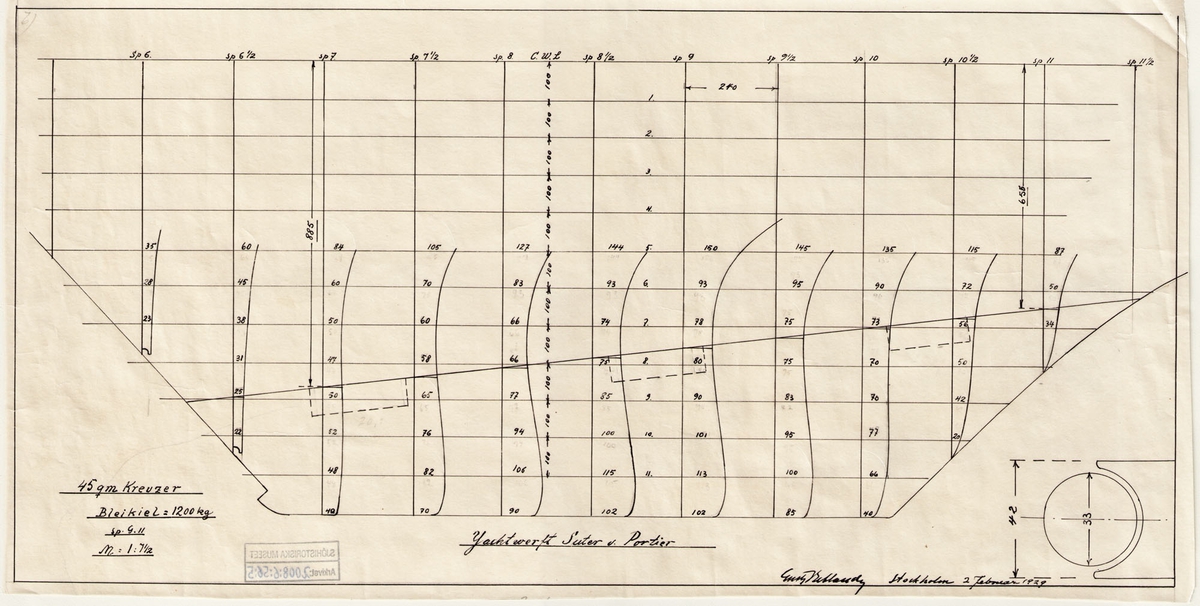 sp 6. sp 6 1/2 sp 7 sp 7 1/2 sp. 8 C. W. L sp 8 1/2 sp 9 sp 9 1/2 sp 10 sp 10 1/2 sp 11 sp 11 1/2
100 100 100 100 100 100 100 100 100 100 100
240
1.
2.
3.
4.
885
658
35 60 84 105 127 144 5. 150 145 135 115 87
28 45 60 70 83 93 6. 93 95 90 72 50
23 38 50 60 66 74 7. 78 75 73 56 34
31 47 58 66 75 8. 80 75 70 50
25 50 65 77 85 9. 90 83 70 42
22 52 76 94 100 10. 101 95 77 20
48 82 106 115 11. 113 100 66
40 70 90 102 102 85 40
45 qm Kreuzer
Bleikiel = 1200 kg
sp. G. 11
M. = 1: 7 1/2
Yachtwerft Suter v. Portier
SJÖHISTORISKA MUSEET
Arkivet 2008:6:56:5
42
33
Stockholm 2 Februar 1929